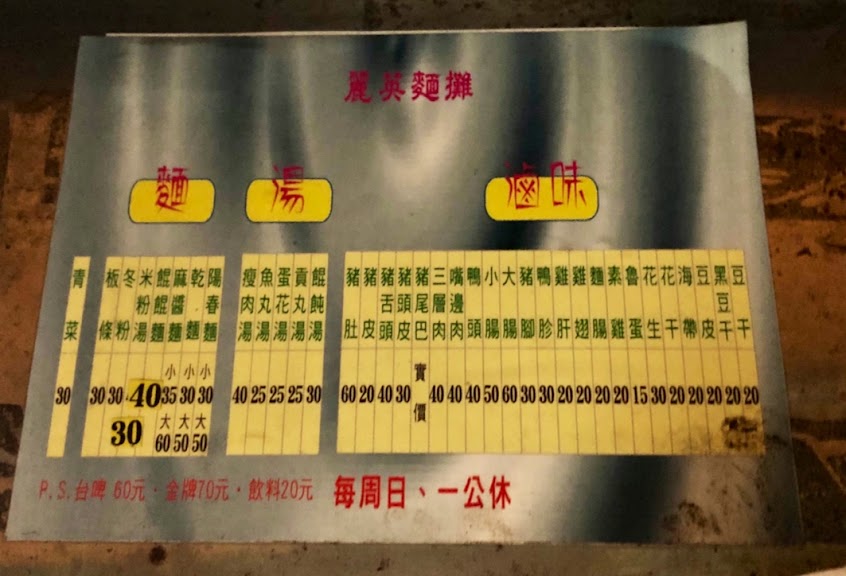 麗英麵攤
麵
陽春麵 小30 大50
乾.麵 小30 大50
麻醬麵 小35 大60
餛餛麵 40
米粉湯 30
冬粉 30
板條 30
青菜 30
湯
餛飩湯 30
貢丸湯 25
蛋花湯 25
魚丸湯 25
瘦肉湯 40
滷味
豆干 20
黑豆干 20
豆皮 20
海帶 20
花干 20
花生 30
魯蛋 15
素雞 20
麵腸 20
雞翅 20
雞肝 20
鴨胗 30
豬腳 30
大腸 60
小腸 50
鴨頭 40
嘴邊肉 40
三層肉 40
豬尾巴 實價
豬頭皮 30
豬舌頭 40
豬皮 20
豬肚 60
P.S.台啤 60元·金牌70元·飲料20元 每周日、一公休